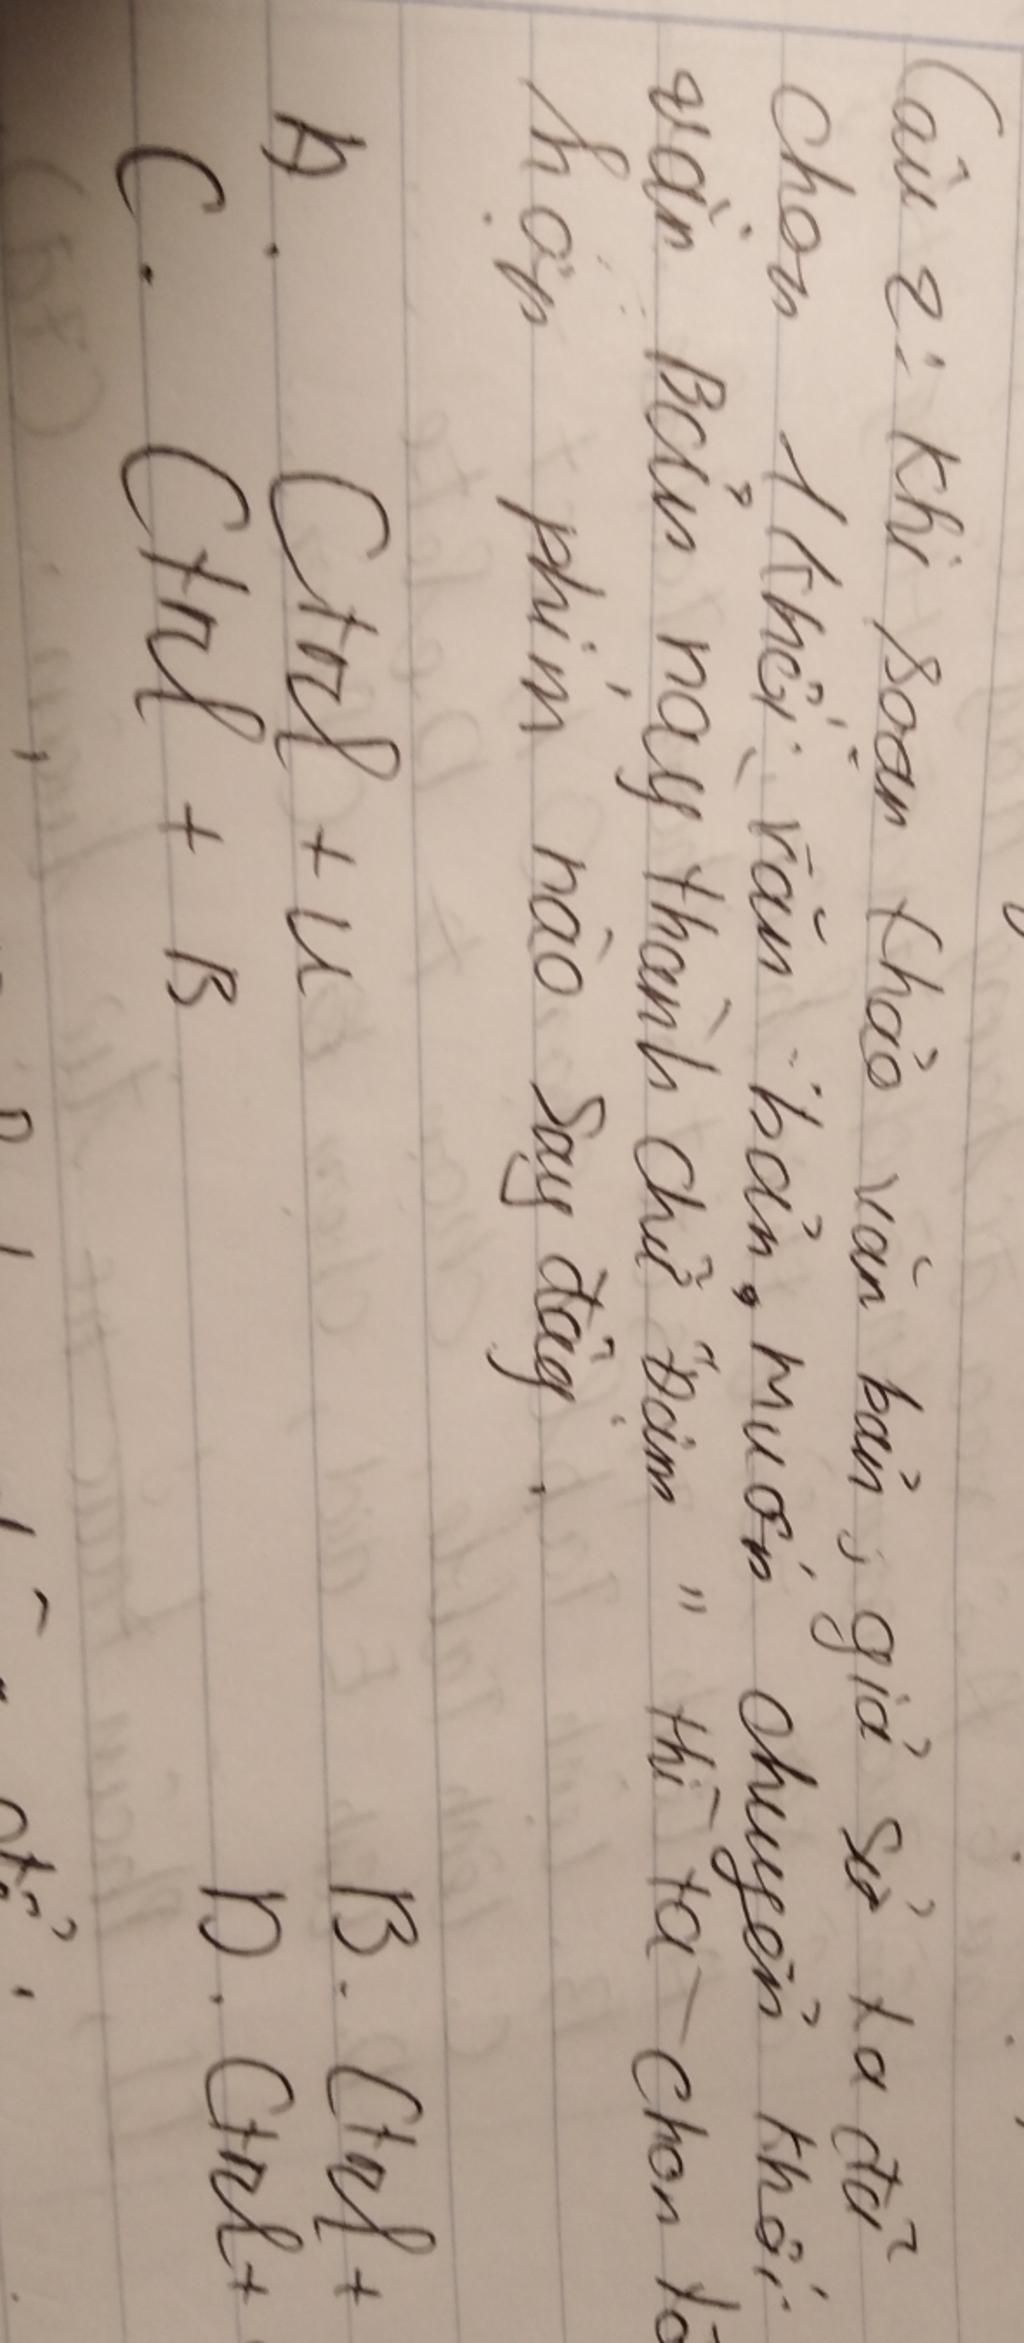 Câu 2: Khi soạn thảo văn bản, giả sử ta đã
chọn 1 khối văn bản, muốn chuyển khối
văn Bản này thành chữ "Đậm" thì ta chọn tổ
hợn phím nào Say đây.
A. Ctrl + U B. Ctrl +
C. Ctrl + B D. Ctrl +